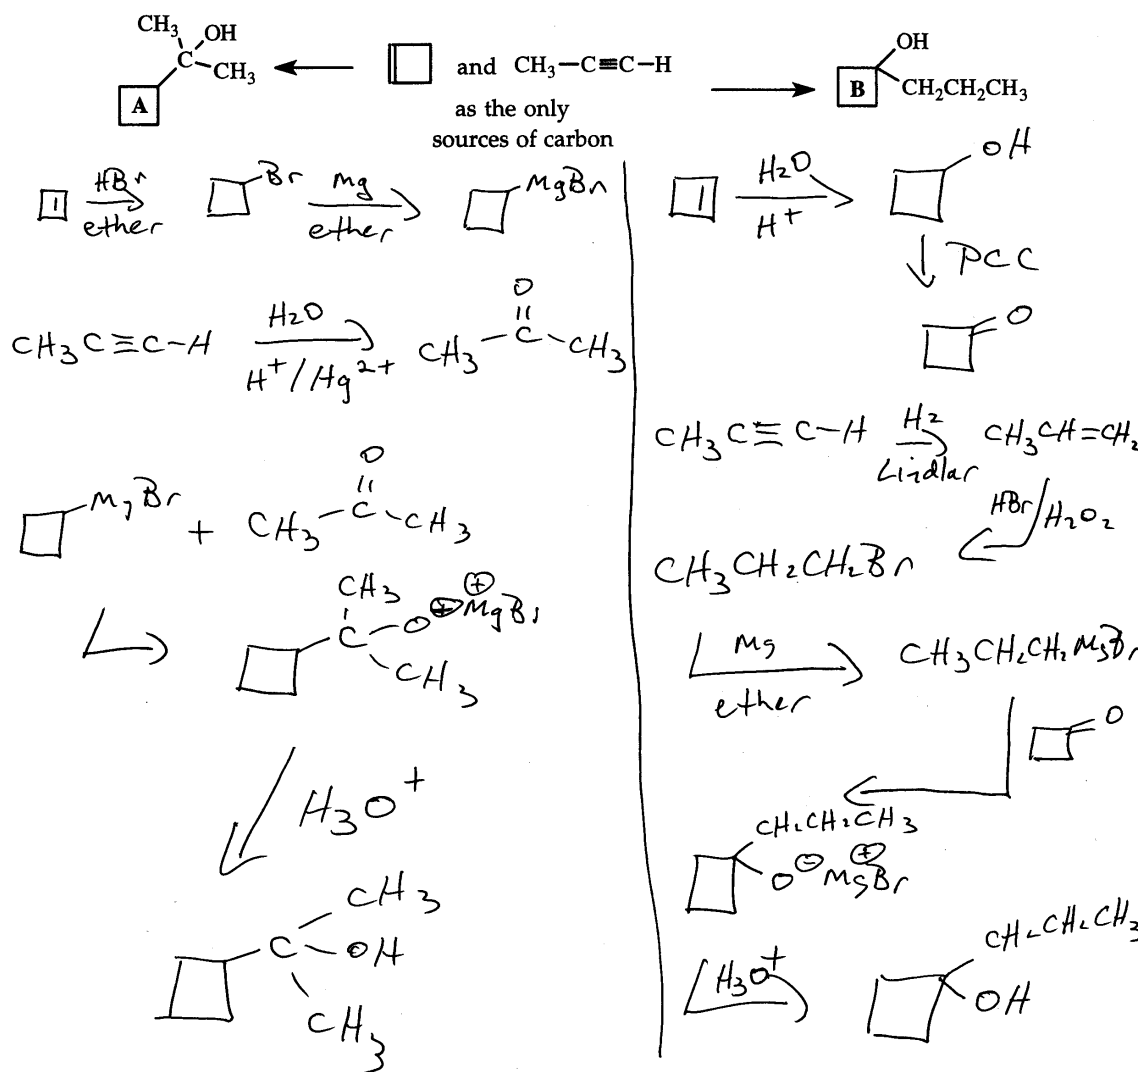 CH₃ OH
C
CH₃
A
and CH₃—C≡C—H
as the only
sources of carbon
OH
B CH₂CH₂CH₃
HBr
ether
Br
Mg
ether
MgBr
CH₃C≡C-H
H₂O
H⁺/Hg²⁺
O
CH₃ C CH₃
MgBr
+
O
CH₃ C CH₃
CH₃
C O ⊕ ⊕ MgBr
CH₃
H₃O⁺
CH₃
C OH
CH₃
H₂O
H⁺
OH
PCC
O
CH₃C≡C-H
H₂
Lindlar
CH₃CH=CH₂
HBr/H₂O₂
CH₃CH₂CH₂Br
Mg
ether
CH₃CH₂CH₂MgBr
O
CH₂CH₂CH₃
O⊖ ⊕MgBr
H₃O⁺
CH₂CH₂CH₃
OH